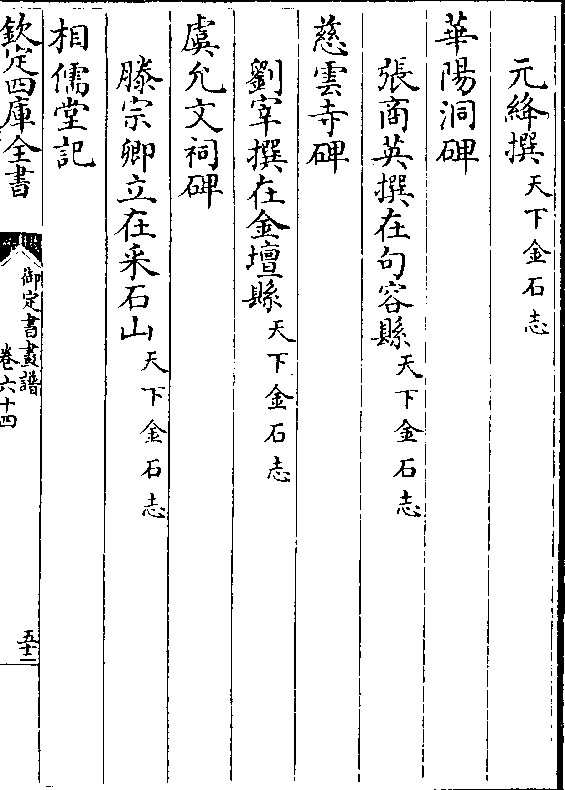 元絳撰天下金石志
華陽洞碑
張商英撰在句容縣天下金石志
慈雲寺碑
劉宰撰在金壇縣天下金石志
虞允文祠碑
滕宗卿立在采石山天下金石志
相儒堂記
欽定四庫全書
御定書畫譜
卷六十四
五十二